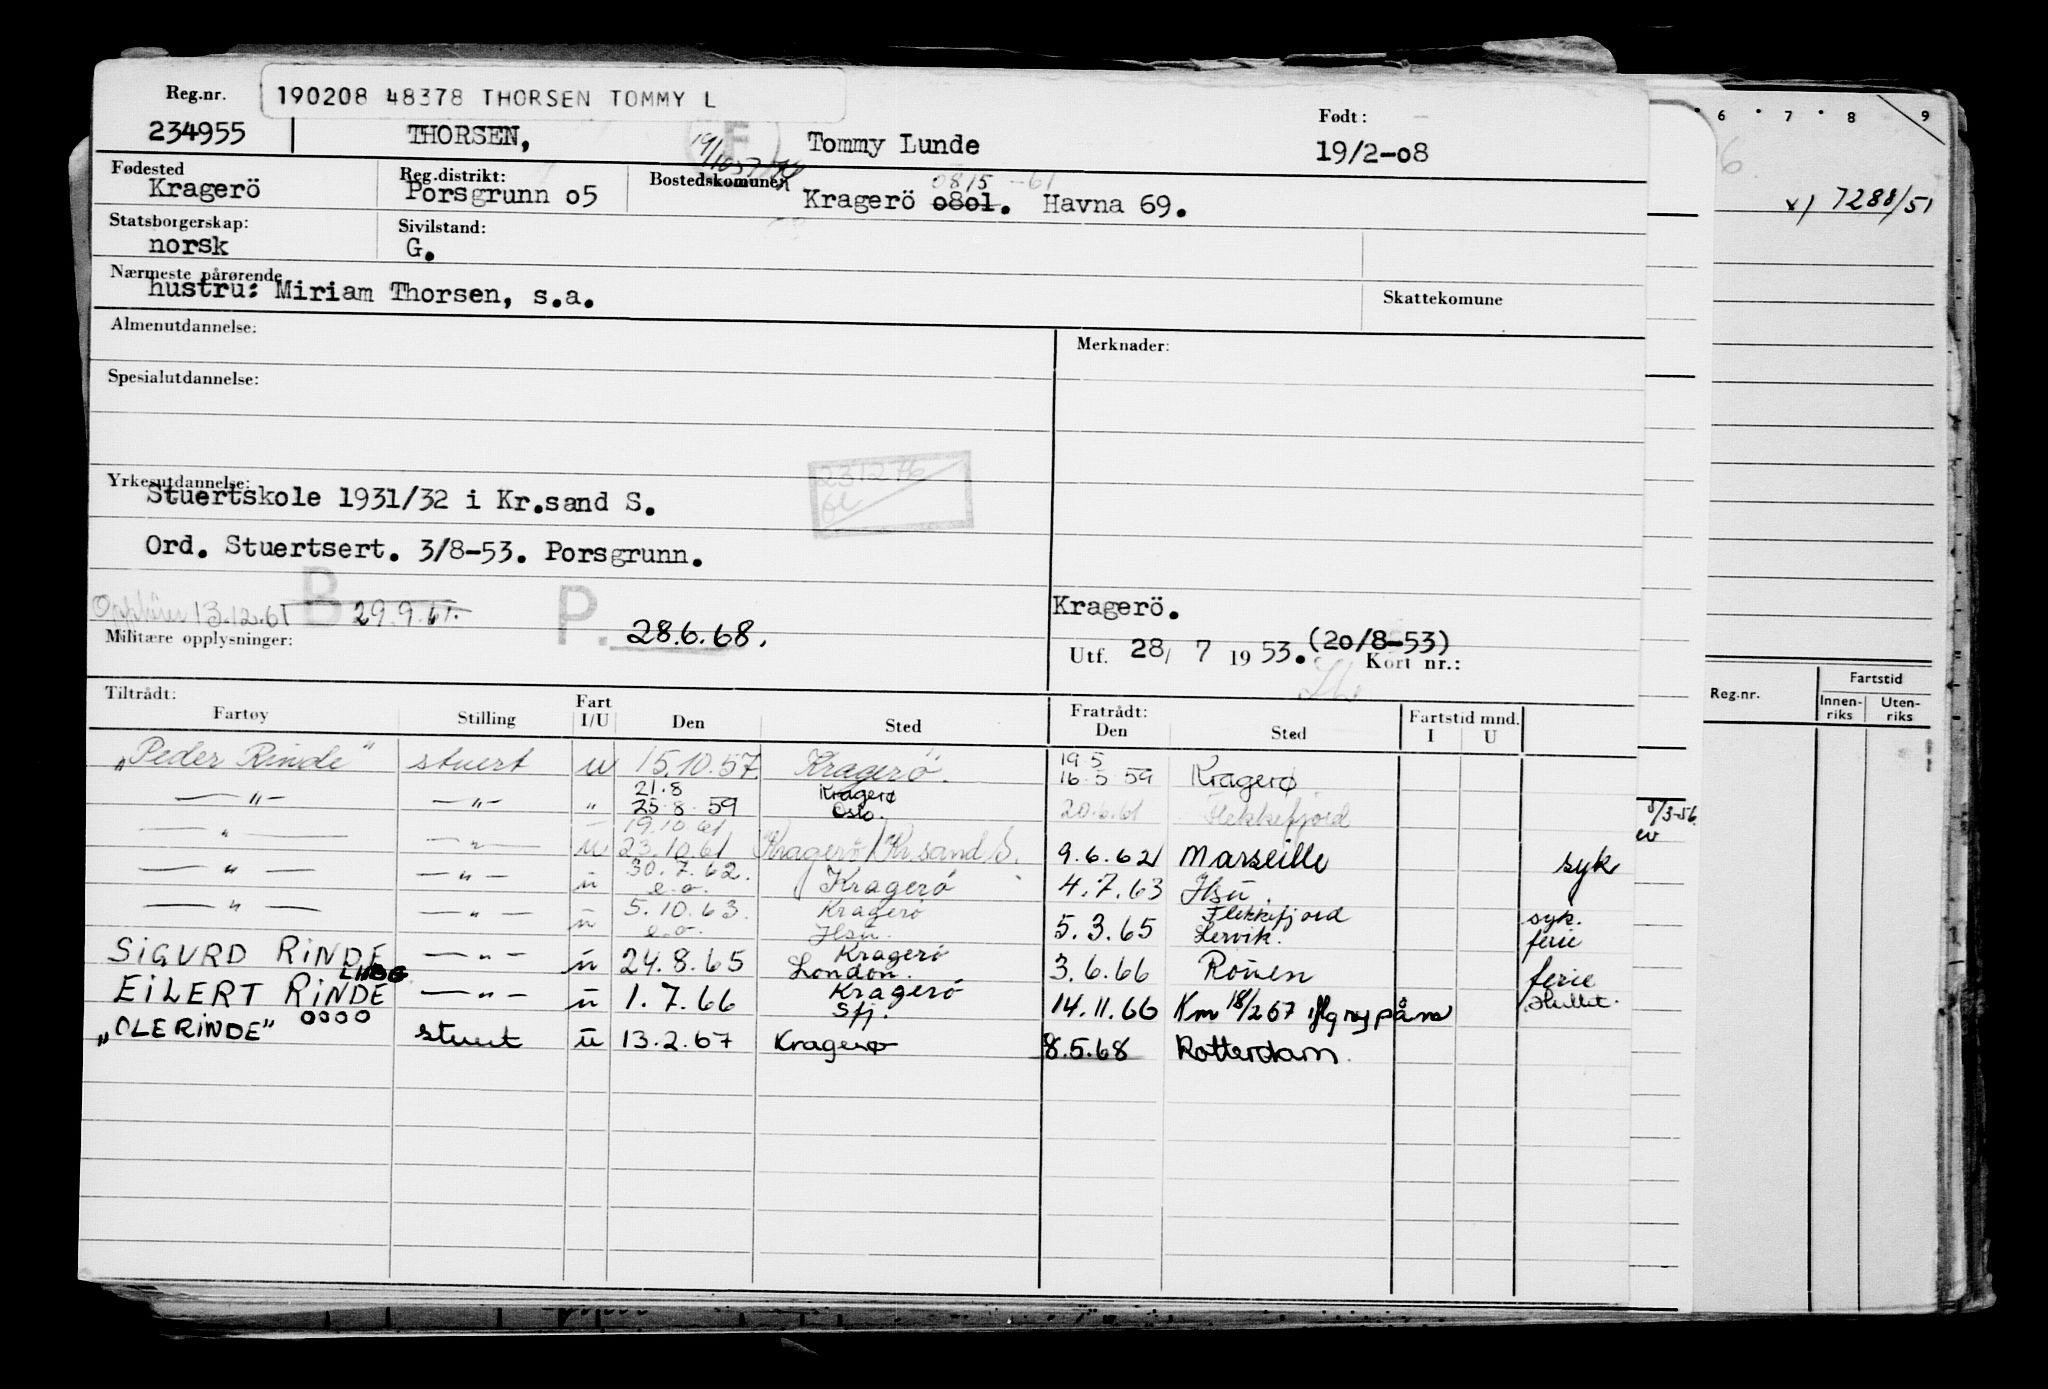 Reg.nr. 190208 48378 THORSEN TOMMY L
234955 THORSEN, Tommy Lunde Født: 19/2-08
F
Fødested Kragerö Reg.distrikt: Porsgrunn o5 Bostedskomune: Kragerö o8o1. Havna 69.
0815 -61
Statsborgerskap: norsk Sivilstand: G.
Nærmeste pårørende hustru: Miriam Thorsen, s.a. Skattekomune
Almenutdannelse: Merknader:
Spesialutdannelse:
Yrkesutdannelse: Stuertskole 1931/32 i Kr.sand S.
231276
Ord. Stuertsert. 3/8-53. Porsgrunn.
13.12.61 B 29.9.61. P. 28.6.68.
Kragerö.
Militære opplysninger: Utf. 28/ 7 1953. (20/8-53) Kort nr.:
Tiltrådt: Fratrådt: Fartstid mnd.
Fartøy Stilling Fart I/U Den Sted Den Sted I U
„Peder Rinde" stuert u 15.10.57 Kragerö. 19.5 16.5.59 Kragerø
—"— —"— " 21.8 25.8.59 Kragerø Oslo. 20.6.61 Flekkefjord
—"— —"— u 19.10.61 23.10.61 Kragerö/Kr.sand S. 9.6.62 Marseille syk
—"— —"— ü 30.7.62. e.o. Kragerö 4.7.63 Hsu.
—"— —"— ü 5.10.63. e.o. Kragerö Hsu. 5.3.65 Flekkefjord Lervik. syk. ferie
SIGURD RINDE —"— ü 24.8.65 Kragerö London. 3.6.66 Rouen ferie
EILERT RINDE —"— ü 1.7.66 Kragerö Sfj. 14.11.66 Km 18/2 67
„OLE RINDE" oooo stuert ü 13.2.67 Kragerø 8.5.68 Rotterdam.
6 7 8 9
x) 7288/51
Reg.nr. Fartstid
Innen-riks Uten-riks
3/3-56.